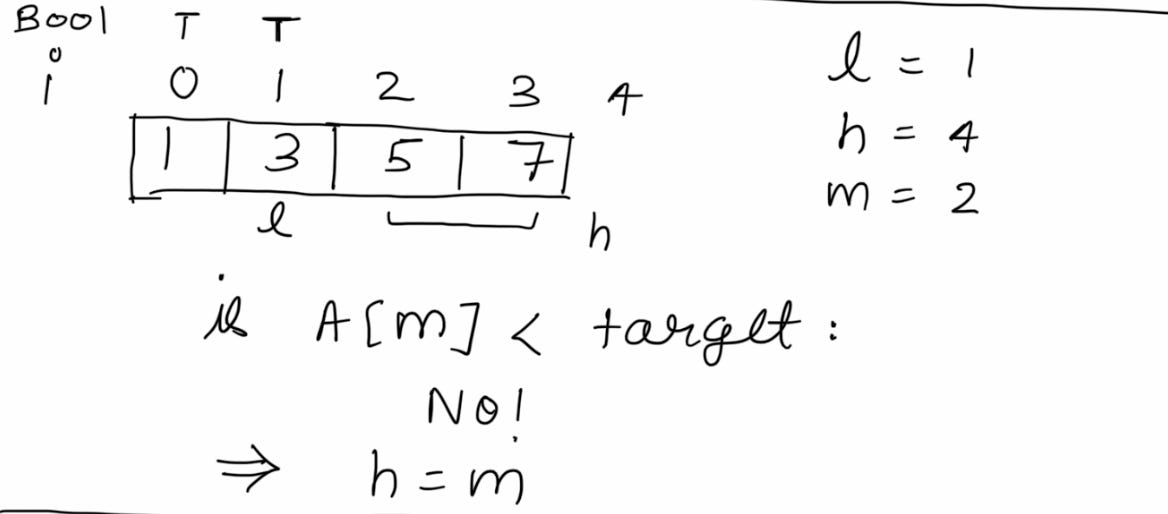 Bool T T
i 0 1 2 3 4
1 3 5 7
l h
l = 1
h = 4
m = 2
is A[m] < target :
No!
⇒ h = m